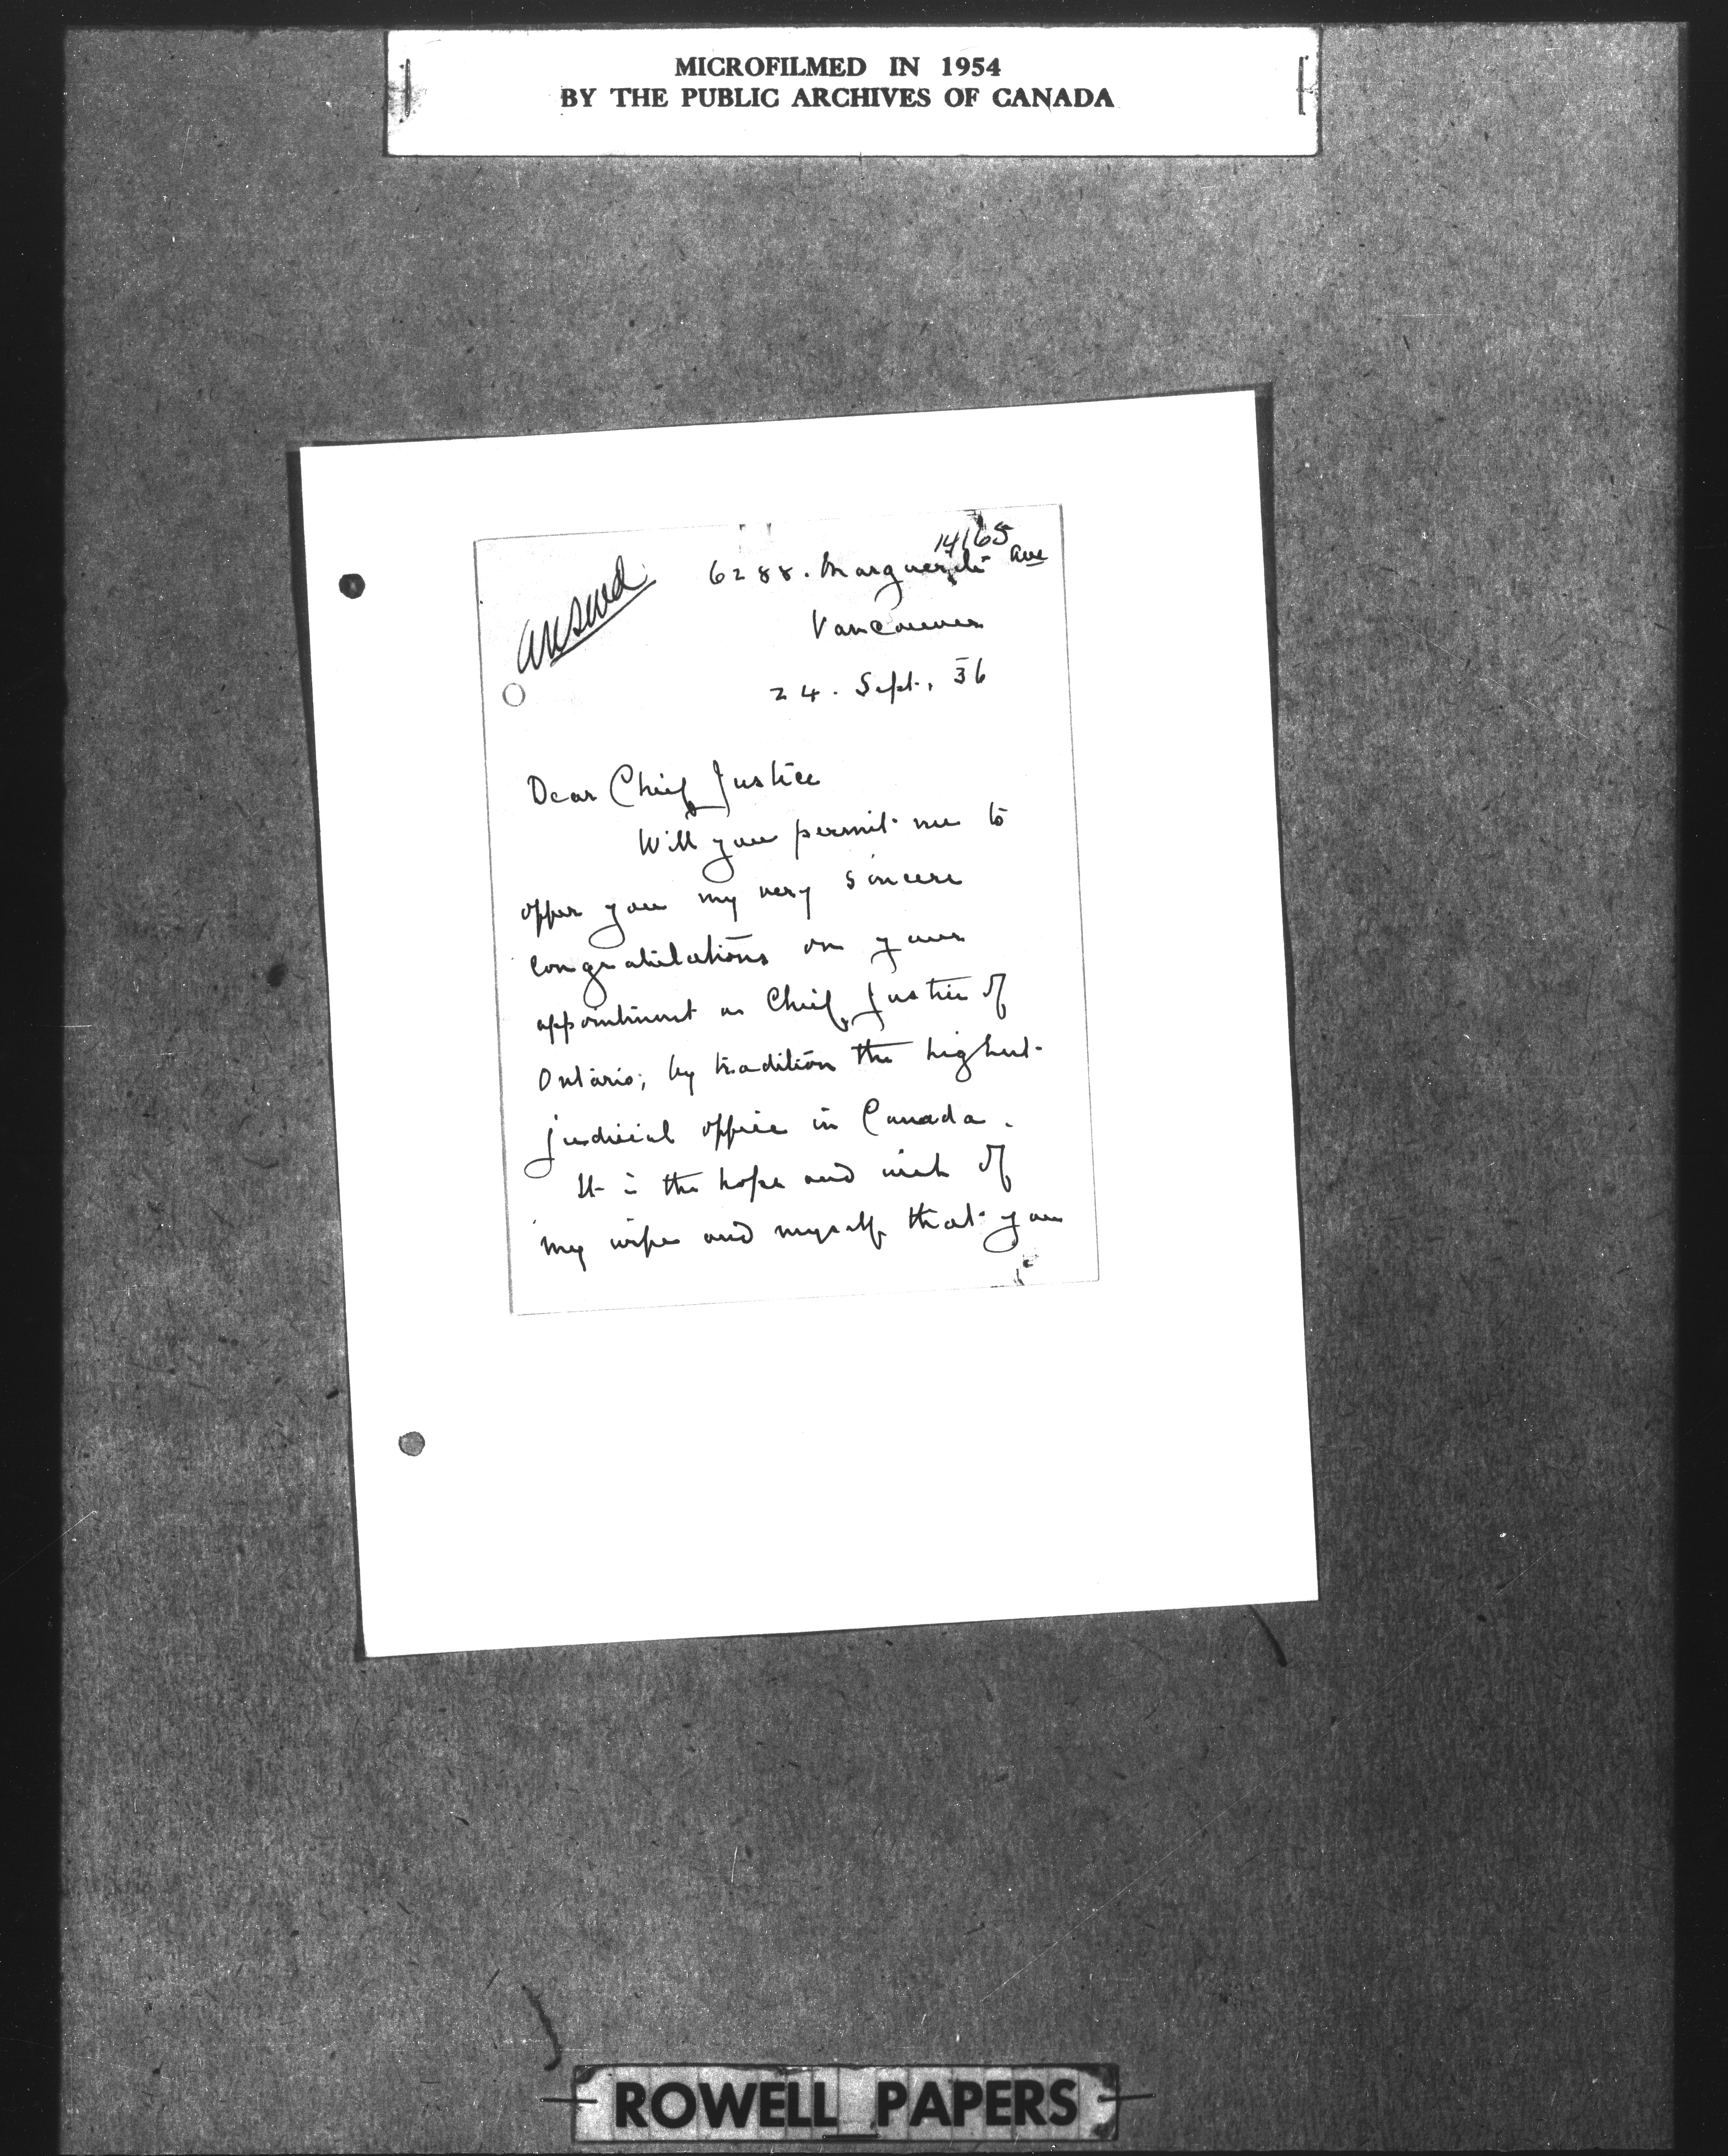 MICROFILMED IN 1954
BY THE PUBLIC ARCHIVES OF CANADA
14165
answd
6288. Marguerite Ave
Vancouver
24. Sept. 36
Dear Chief Justice
Will you permit me to
offer you my very sincere
congratulations on your
appointment as Chief Justice of
Ontario; by tradition the highest
judicial office in Canada.
It is the hope and wish of
my wife and myself that you
ROWELL PAPERS